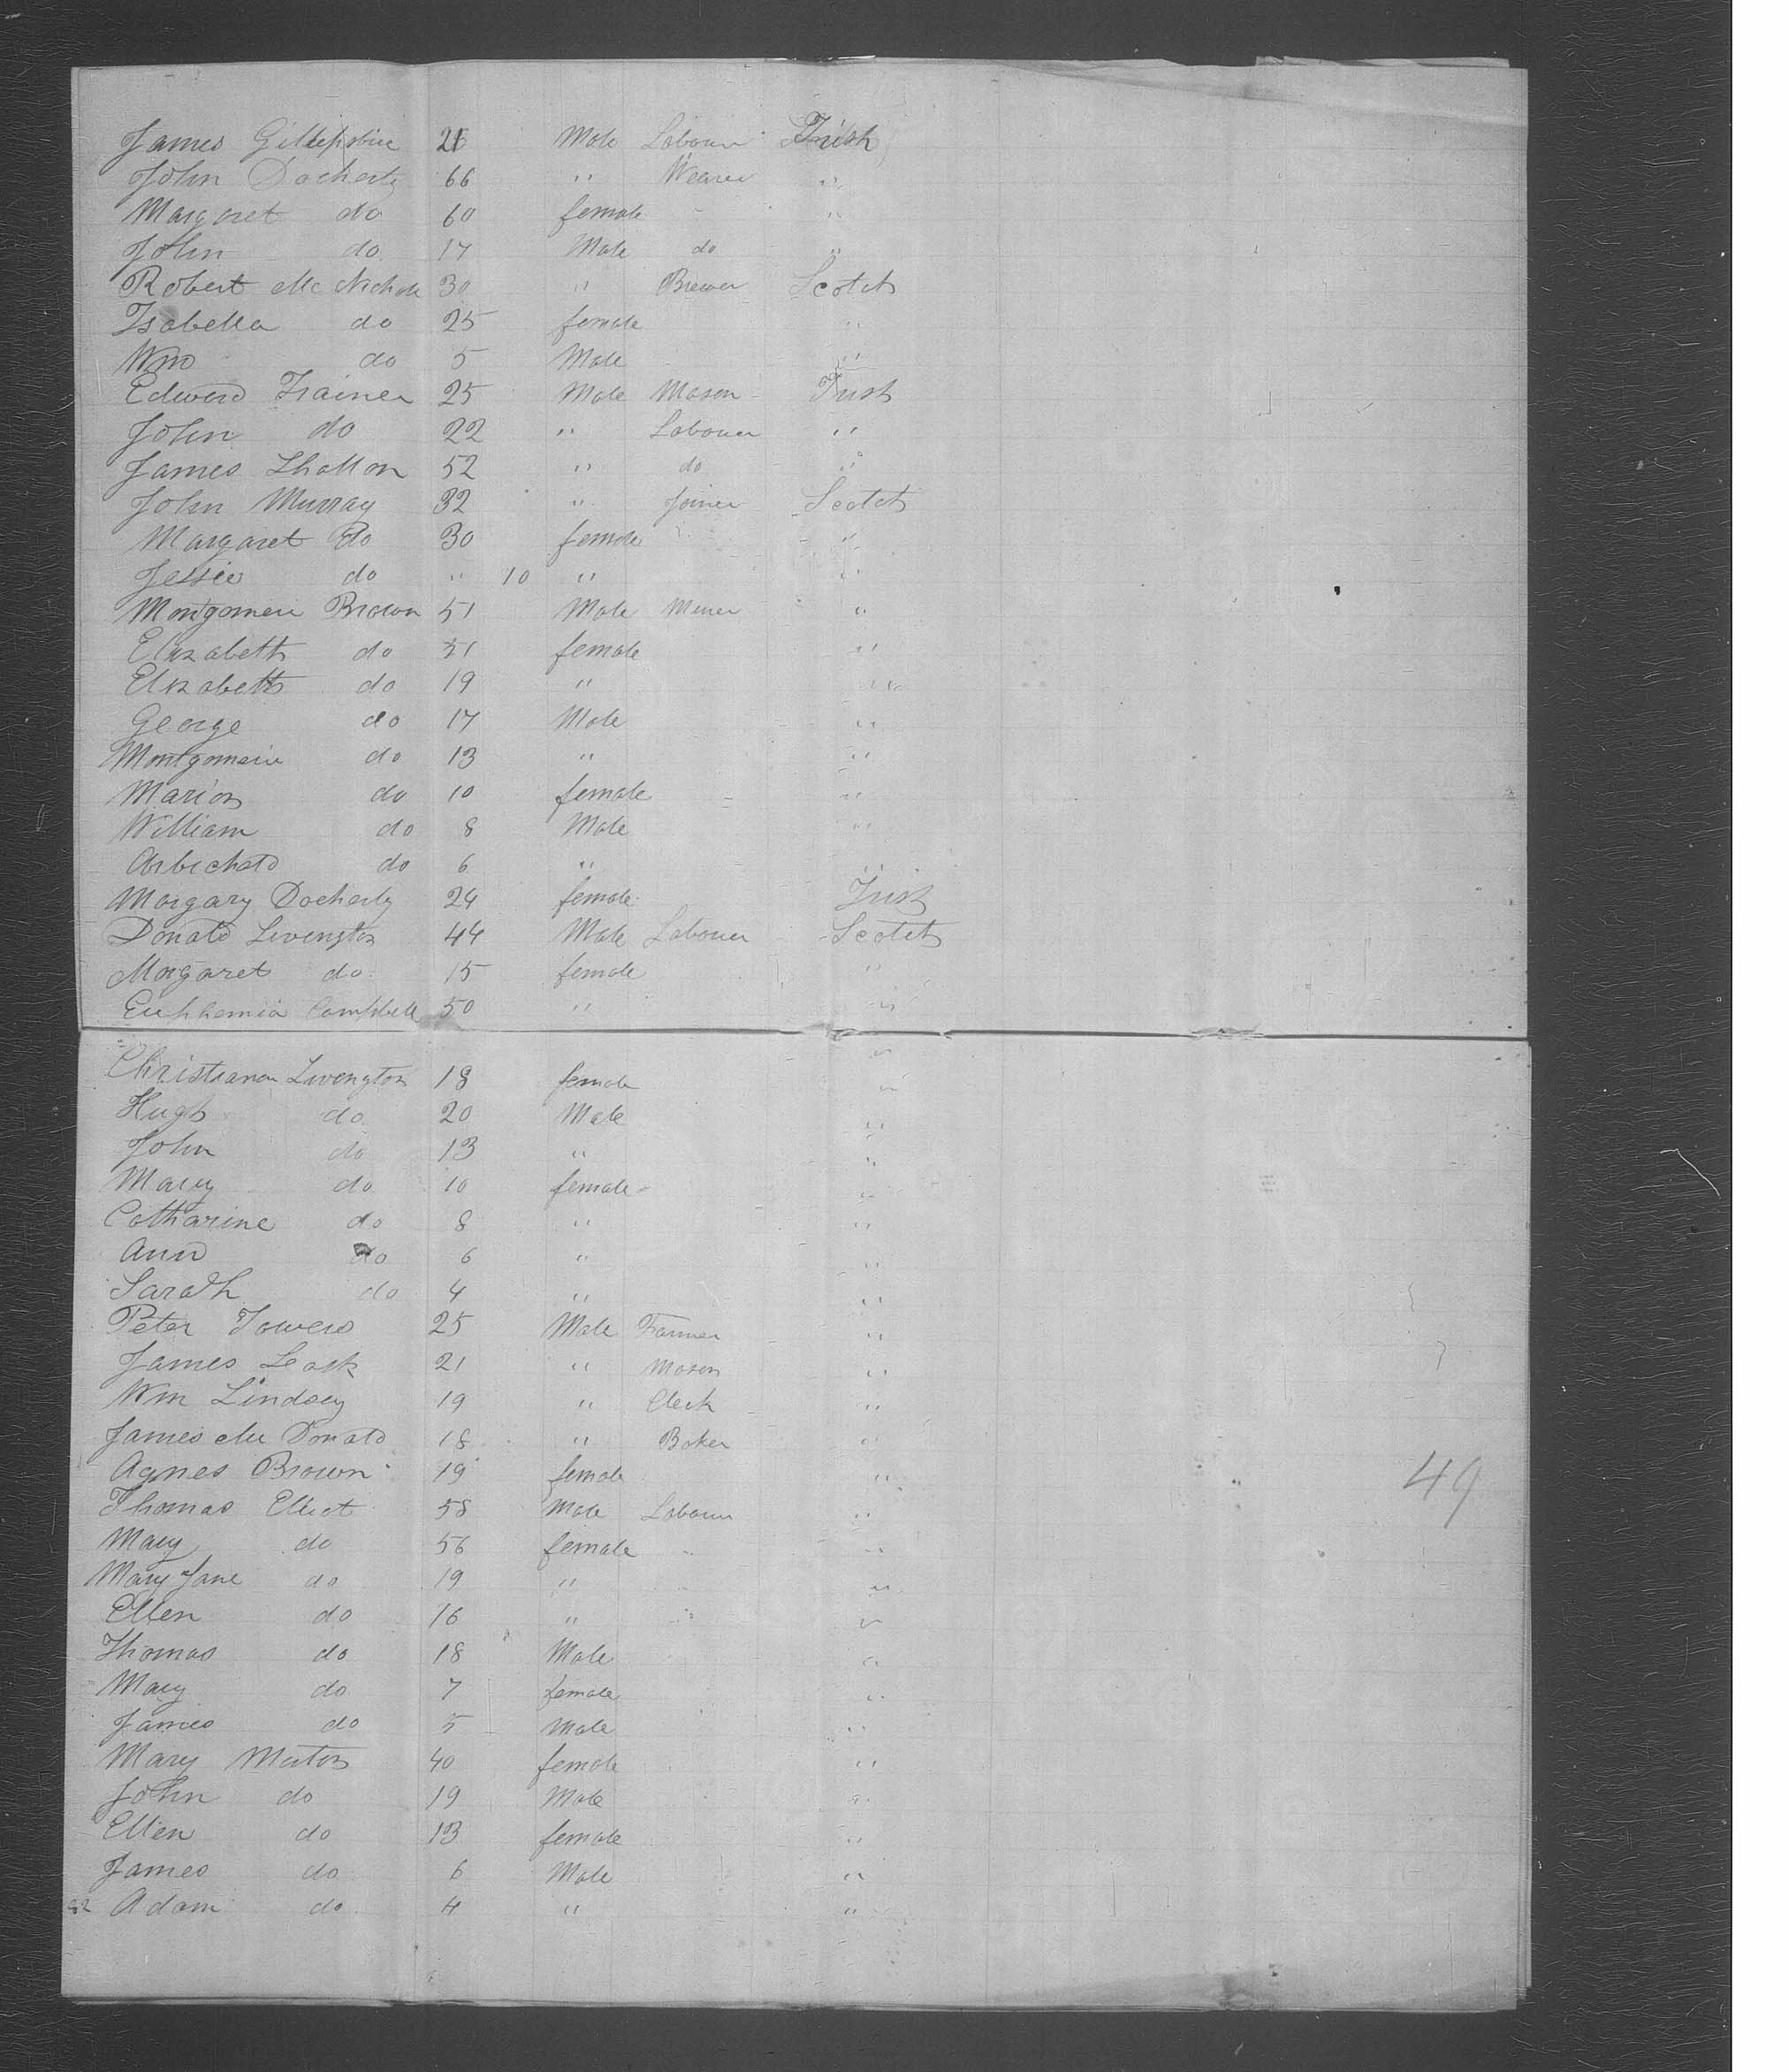 James Gillespie 26 Male Labourer Irish
John Docherty 66 " Weaver "
Margaret do 60 female "
John do 17 Male do "
Robert Mc Nichole 30 " Brewer Scotch
Isabella do 25 female "
Wm do 5 Male "
Edward Trainer 25 Male Mason Irish
John do 22 " Labourer "
James 52 " do "
John Murray 32 " Joiner Scotch
Margaret do 30 female "
Jessie do " 10 " "
Montgomerie Brown 51 Male Miner "
Elizabeth do 51 female "
Elizabeth do 19 " "
George do 17 Male "
Montgomerie do 13 " "
Marion do 10 female "
William do 8 Male "
Archibald do 6 " "
Margary Docherty 24 female Irish
Donald Livengston 44 Male Labourer Scotch
Margaret do 15 female "
Euphemia Campbell 50 " "
Christiana Livengston 18 female "
Hugh do 20 Male "
John do 13 " "
Mary do 10 female "
Catharine do 8 " "
Ann do 6 " "
Sarah do 4 " "
Peter Towers 25 Male Farmer "
James Leask 21 " Mason "
Wm Lindsay 19 " Clerk "
James Mc Donald 18 " Baker "
Agnes Brown 19 female "
49
Thomas Elliot 58 Male Labourer "
Mary do 56 female "
Mary Jane do 19 " "
Ellen do 16 " "
Thomas do 18 Male "
Mary do 7 female "
James do 5 Male "
Mary 40 female "
John do 19 Male "
Ellen do 13 female "
James do 6 Male "
Adam do 4 " "